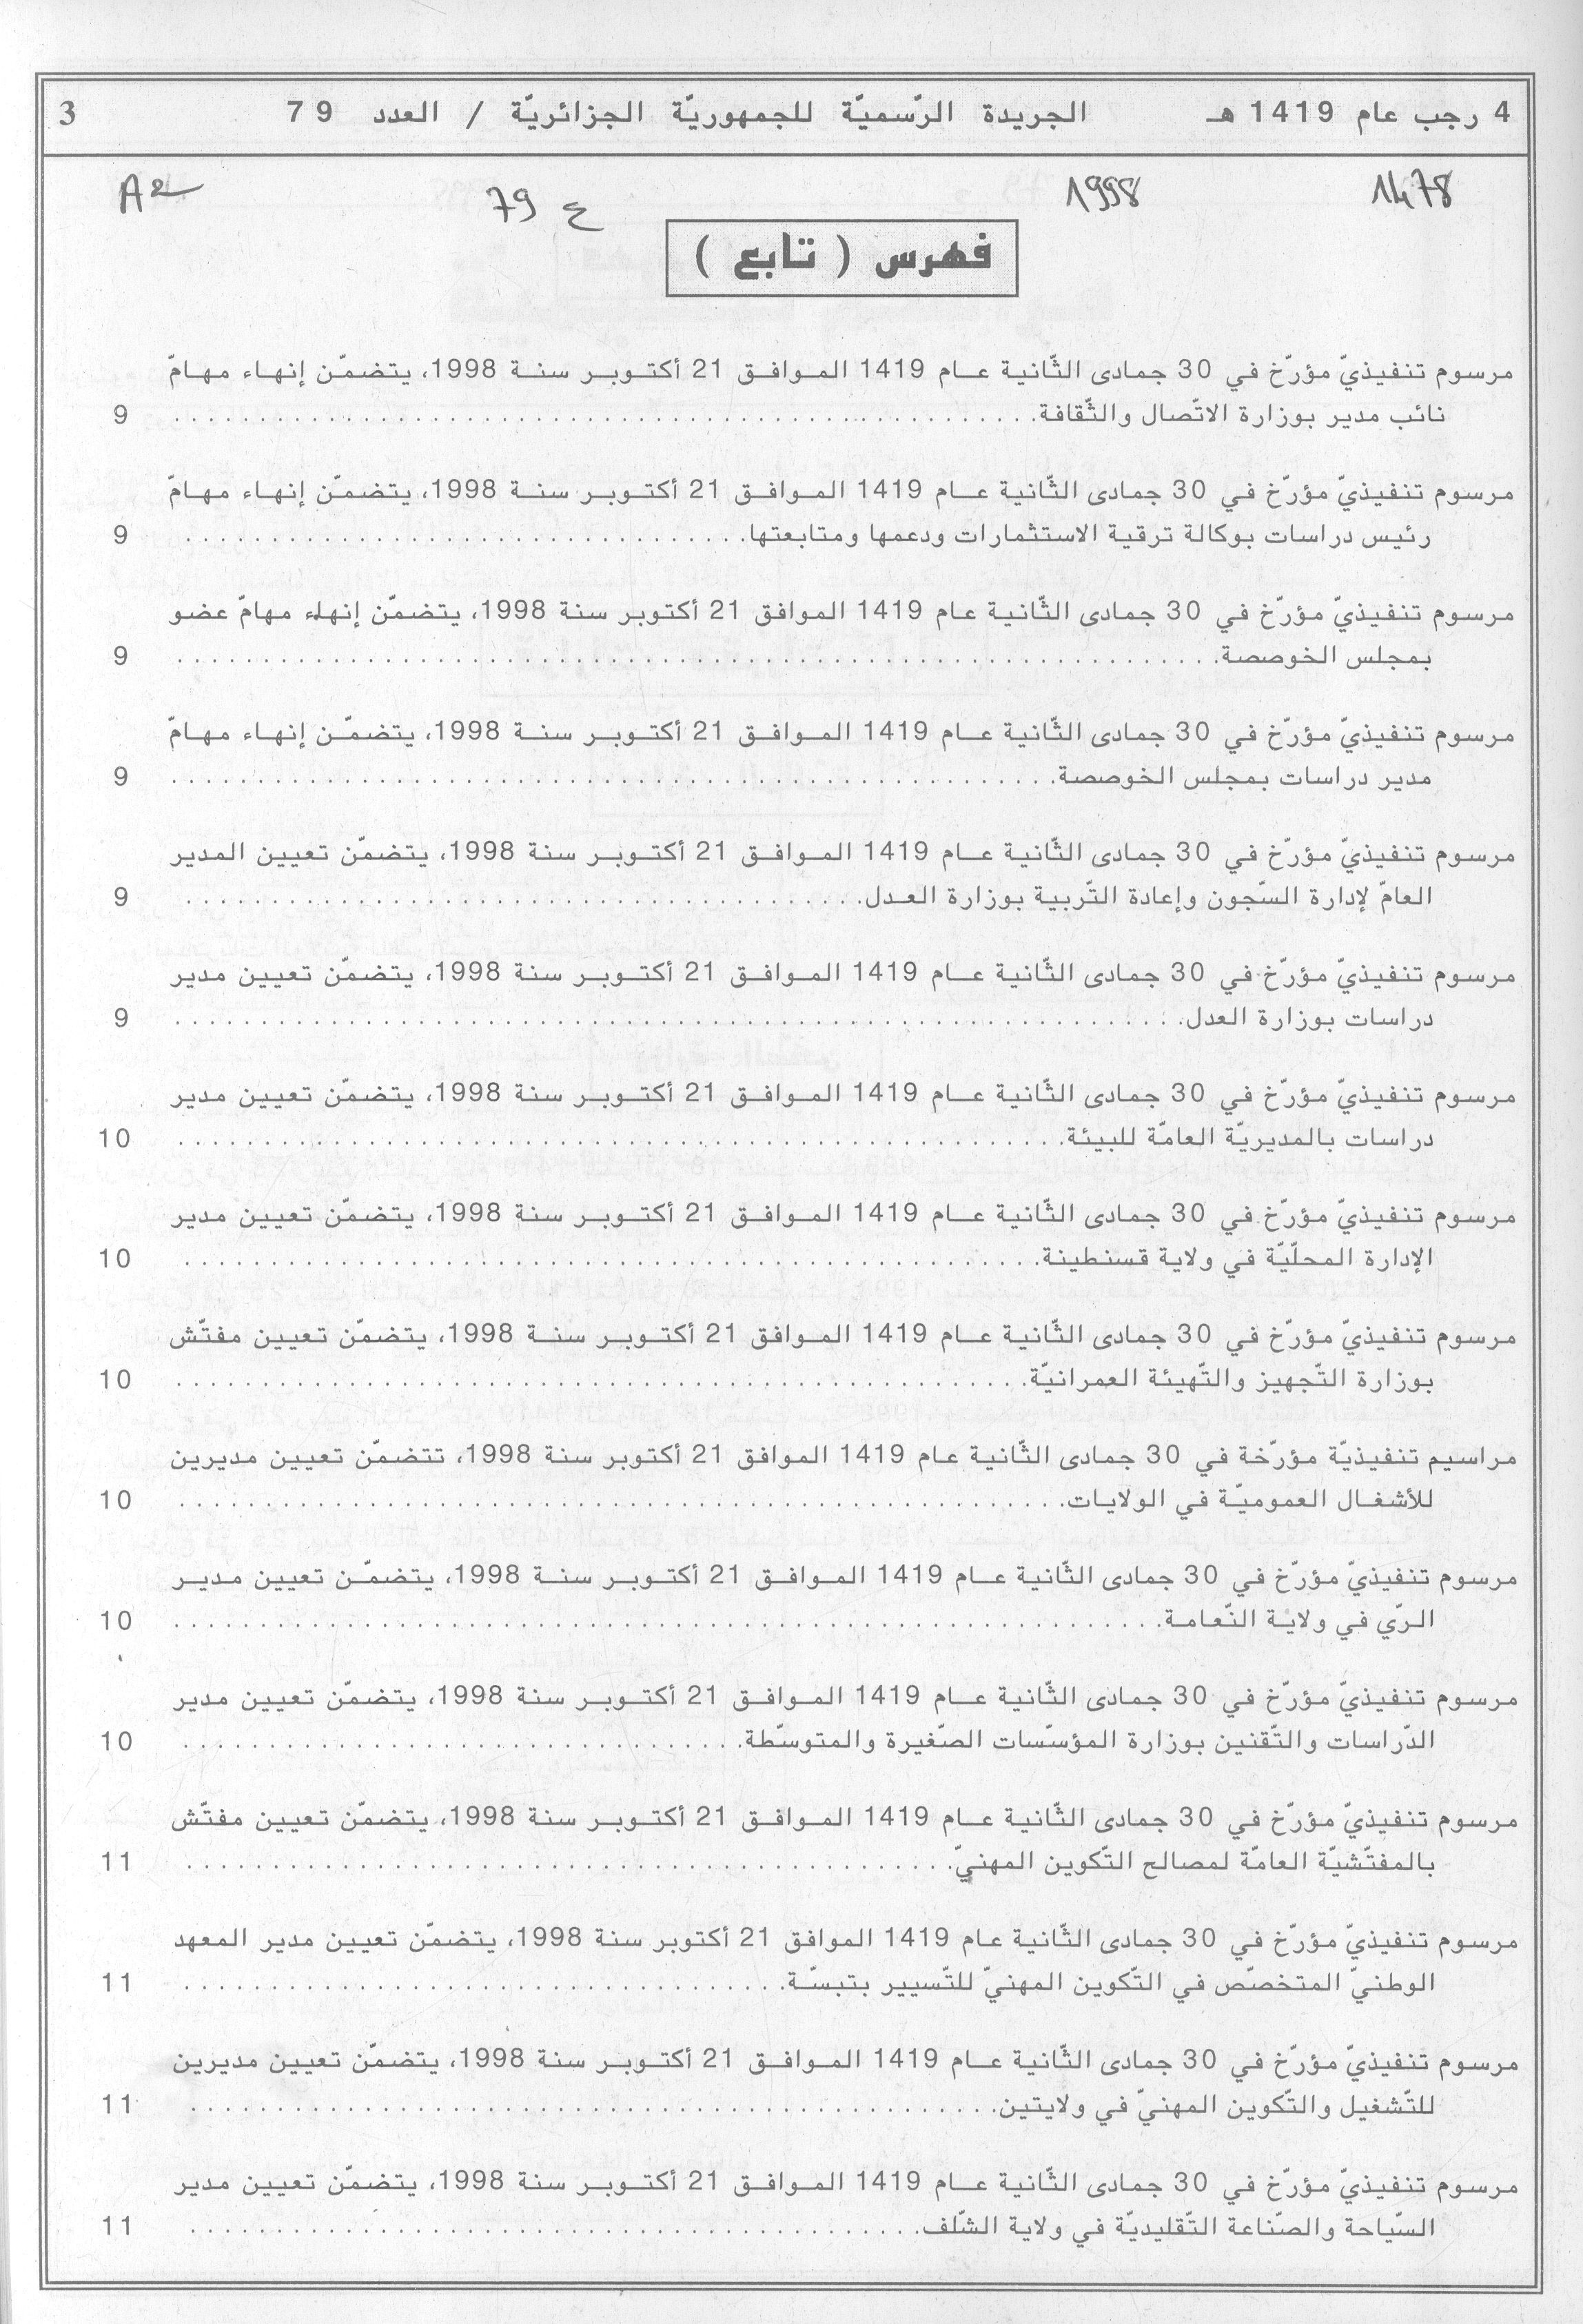 4 رجب عام 1419 هـ الجريدة الرّسميّة للجمهوريّة الجزائريّة / العدد 79 3
1478 1998 ع 79 A2
فهرس ( تابع )
مرسوم تنفيذيّ مؤرّخ في 30 جمادى الثّانية عـام 1419 المـوافـق 21 أكتـوبـر سنـة 1998، يتضمّن إنهـاء مهـامّ
نائب مدير بوزارة الاتّصال والثّقافة. . . . . . . . . . . . . . . . . . . . 9
مرسوم تنفيذيّ مؤرّخ في 30 جمادى الثّانية عـام 1419 المـوافـق 21 أكتـوبـر سنـة 1998، يتضمّن إنهـاء مهـامّ
رئيس دراسات بوكالة ترقية الاستثمارات ودعمها ومتابعتها. . . . . . . . . . . . . . . . . . . . 9
مرسوم تنفيذيّ مؤرّخ في 30 جمادى الثّانية عام 1419 الموافق 21 أكتوبر سنة 1998، يتضمّن إنهاء مهامّ عضو
بمجلس الخوصصة. . . . . . . . . . . . . . . . . . . . 9
مرسوم تنفيذيّ مؤرّخ في 30 جمادى الثّانية عـام 1419 المـوافـق 21 أكتـوبـر سنـة 1998، يتضمّـن إنهـاء مهـامّ
مدير دراسات بمجلس الخوصصة. . . . . . . . . . . . . . . . . . . . 9
مرسوم تنفيذيّ مؤرّخ في 30 جمادى الثّانية عـام 1419 المـوافـق 21 أكتـوبـر سنة 1998، يتضمّن تعيين المدير
العامّ لإدارة السّجون وإعادة التّربية بوزارة العـدل. . . . . . . . . . . . . . . . . . . . 9
مرسوم تنفيذيّ مؤرّخ في 30 جمادى الثّانية عـام 1419 المـوافـق 21 أكتـوبـر سنة 1998، يتضمّن تعيين مدير
دراسات بوزارة العدل. . . . . . . . . . . . . . . . . . . . 9
مرسوم تنفيذيّ مؤرّخ في 30 جمادى الثّانية عـام 1419 المـوافـق 21 أكتـوبـر سنـة 1998، يتضمّن تعيين مدير
دراسات بالمديريّة العامّة للبيئة. . . . . . . . . . . . . . . . . . . . 10
مرسوم تنفيذيّ مؤرّخ في 30 جمادى الثّانية عـام 1419 المـوافـق 21 أكتـوبـر سنـة 1998، يتضمّن تعيين مدير
الإدارة المحلّيّة في ولاية قسنطينة. . . . . . . . . . . . . . . . . . . . 10
مرسوم تنفيذيّ مؤرّخ في 30 جمادى الثّانية عـام 1419 الموافق 21 أكتـوبـر سنـة 1998، يتضمّن تعيين مفتّش
بوزارة التّجهيز والتّهيئة العمرانيّة. . . . . . . . . . . . . . . . . . . . 10
مراسيم تنفيذيّة مؤرّخة في 30 جمادى الثّانية عام 1419 الموافق 21 أكتوبر سنة 1998، تتضمّن تعيين مديرين
للأشغـال العموميّـة في الولايـات. . . . . . . . . . . . . . . . . . . . 10
مرسوم تنفيذيّ مؤرّخ في 30 جمادى الثّانية عـام 1419 المـوافـق 21 أكتـوبـر سنـة 1998، يتضمّـن تعيين مديـر
الـريّ في ولايـة النّعامـة. . . . . . . . . . . . . . . . . . . . 10
مرسوم تنفيذيّ مؤرّخ في 30 جمادى الثّانية عـام 1419 المـوافـق 21 أكتـوبـر سنة 1998، يتضمّن تعيين مدير
الدّراسات والتّقنين بوزارة المؤسّسات الصّغيرة والمتوسّطة. . . . . . . . . . . . . . . . . . . . 10
مرسوم تنفيذيّ مؤرّخ في 30 جمادى الثّانية عـام 1419 المـوافـق 21 أكتـوبـر سنة 1998، يتضمّن تعيين مفتّش
بالمفتّشيّة العامّة لمصالح التّكوين المهنيّ. . . . . . . . . . . . . . . . . . . . 11
مرسوم تنفيذيّ مؤرّخ في 30 جمادى الثّانية عام 1419 الموافق 21 أكتوبر سنة 1998، يتضمّن تعيين مدير المعهد
الوطنيّ المتخصّص في التّكوين المهنيّ للتّسيير بتبسّـة. . . . . . . . . . . . . . . . . . . . 11
مرسوم تنفيذيّ مؤرّخ في 30 جمادى الثّانية عـام 1419 المـوافـق 21 أكتـوبـر سنة 1998، يتضمّن تعيين مديرين
للتّشغيل والتّكوين المهنيّ في ولايتين. . . . . . . . . . . . . . . . . . . . 11
مرسوم تنفيذيّ مؤرّخ في 30 جمادى الثّانية عـام 1419 المـوافـق 21 أكتـوبـر سنة 1998، يتضمّن تعيين مدير
السّياحة والصّناعة التّقليديّة في ولاية الشّلف. . . . . . . . . . . . . . . . . . . . 11